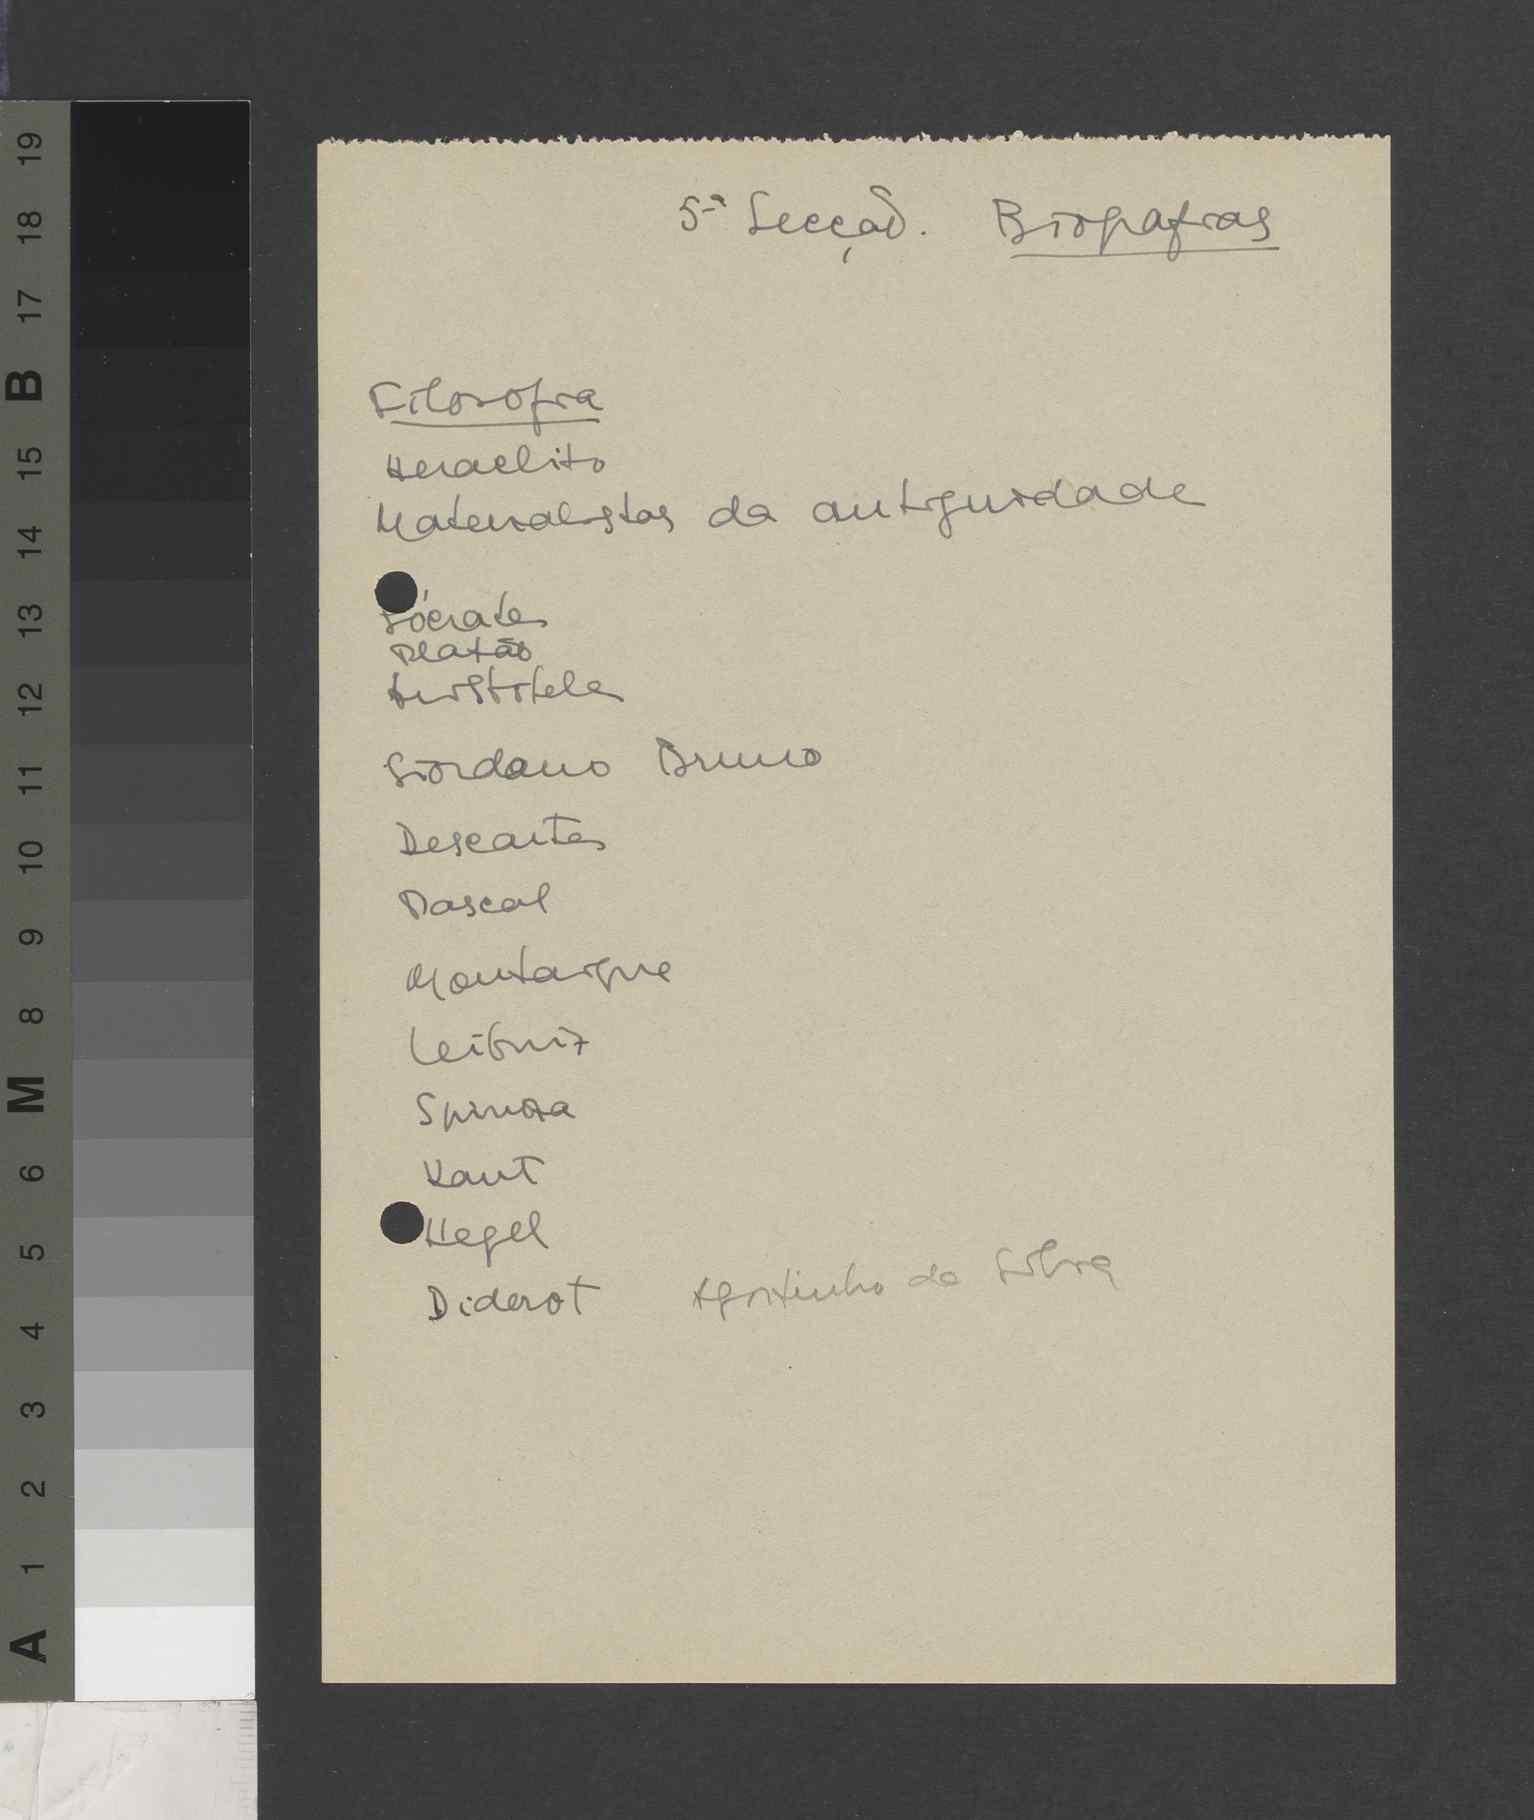 5ª Secção. Biografias
Filosofia
Heraclito
Materialistas da antiguidade
Sócrates
Platão
Aristóteles
Giordano Bruno
Descartes
Pascal
Montaigne
Leibniz
Spinoza
Kant
Hegel
Diderot Agostinho da Silva
19
18
17
B
15
14
13
12
11
10
9
8
M
6
5
4
3
2
1
A